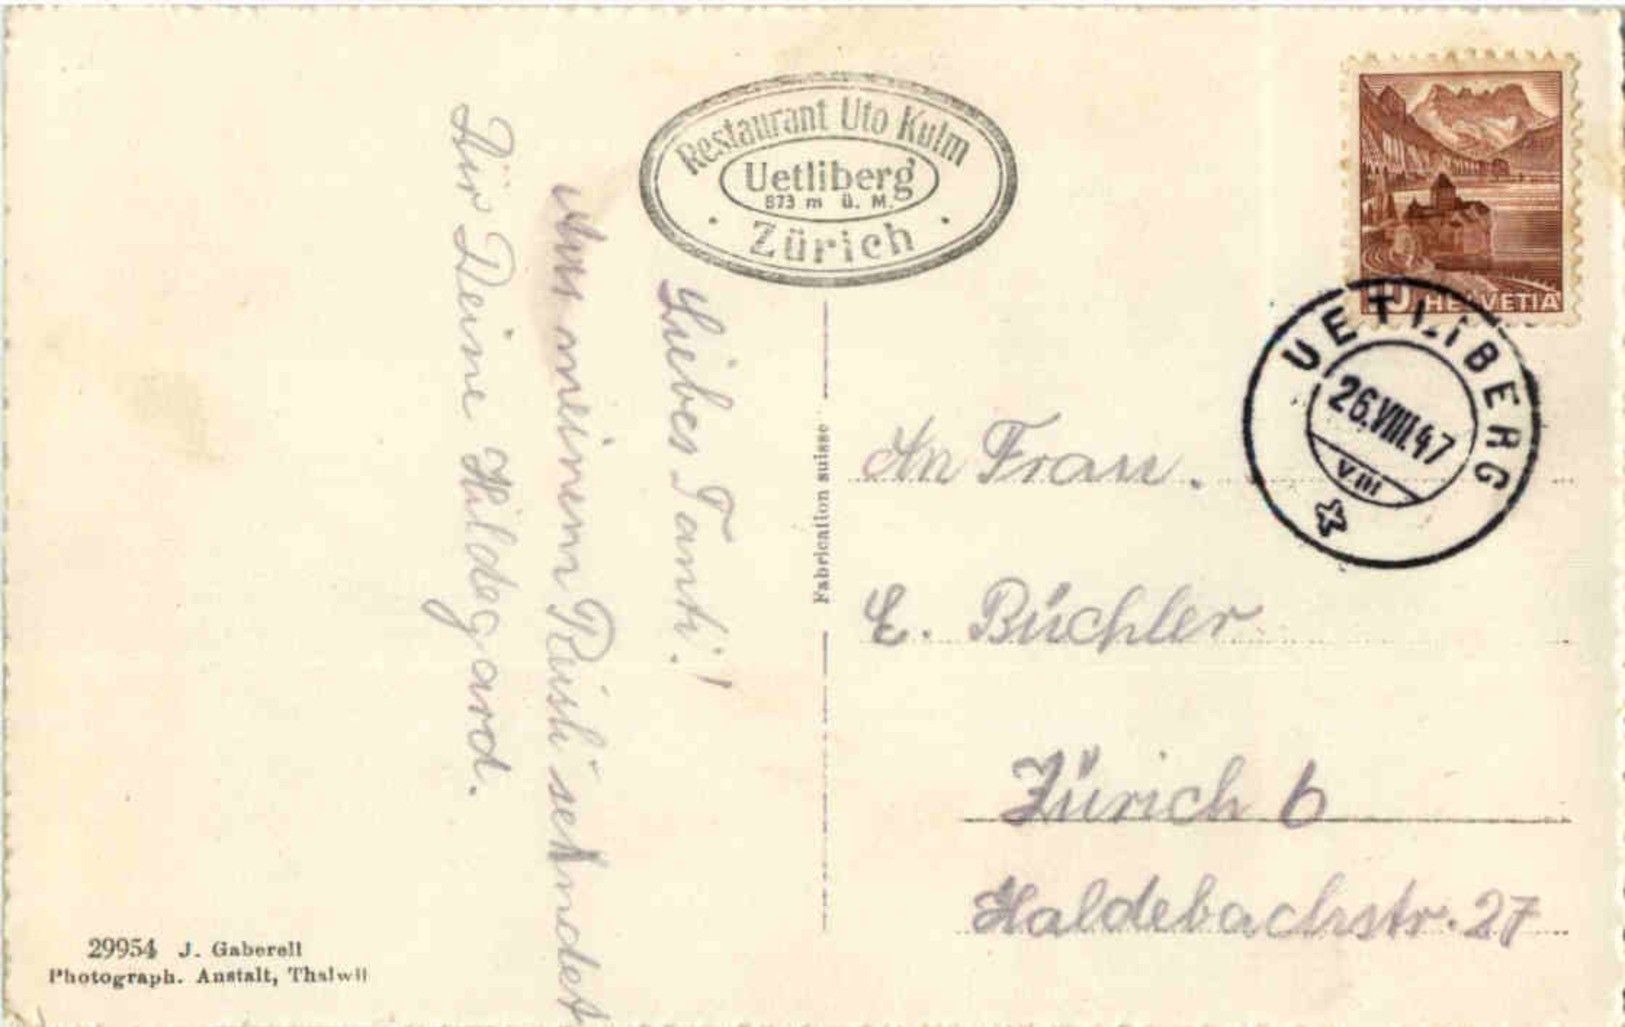 Restaurant Uto Kulm
Uetliberg
873 m ü. M.
Zürich
HELVETIA
UETLIBERG
26.VIII.47
VIII
Liebes Tanti!
Aus meinem Reisli sehndet
Dir Deine Hildegard.
Fabrication suisse
An Frau.
E. Büchler
Zürich 6
Haldebachstr. 27
29954 J. Gaberell
Photograph. Anstalt, Thalwil